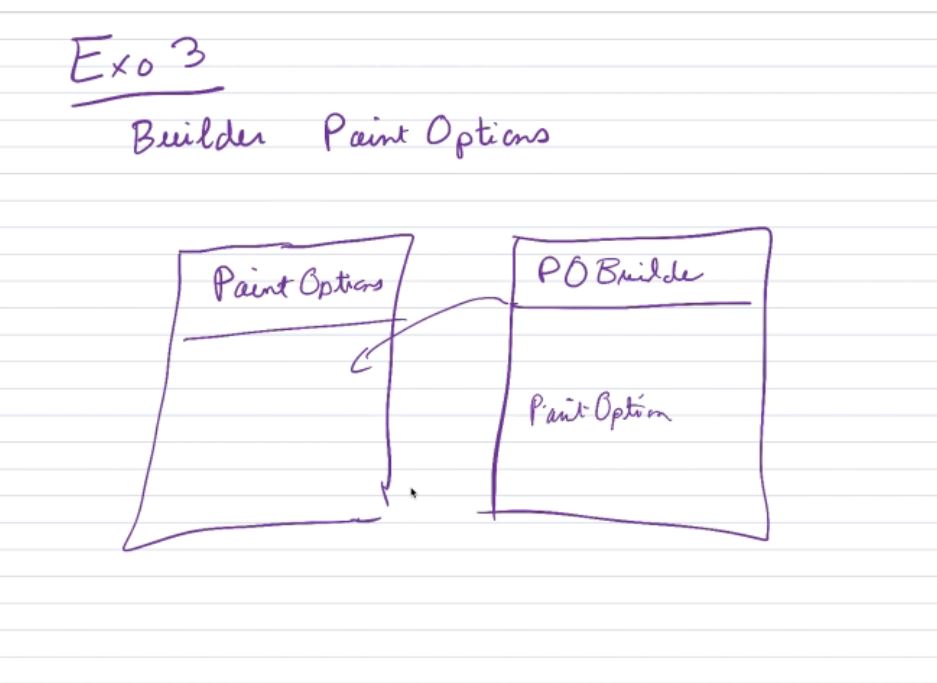 Exo 3
Builder Paint Options
Paint Options
PO Builde
Paint Option